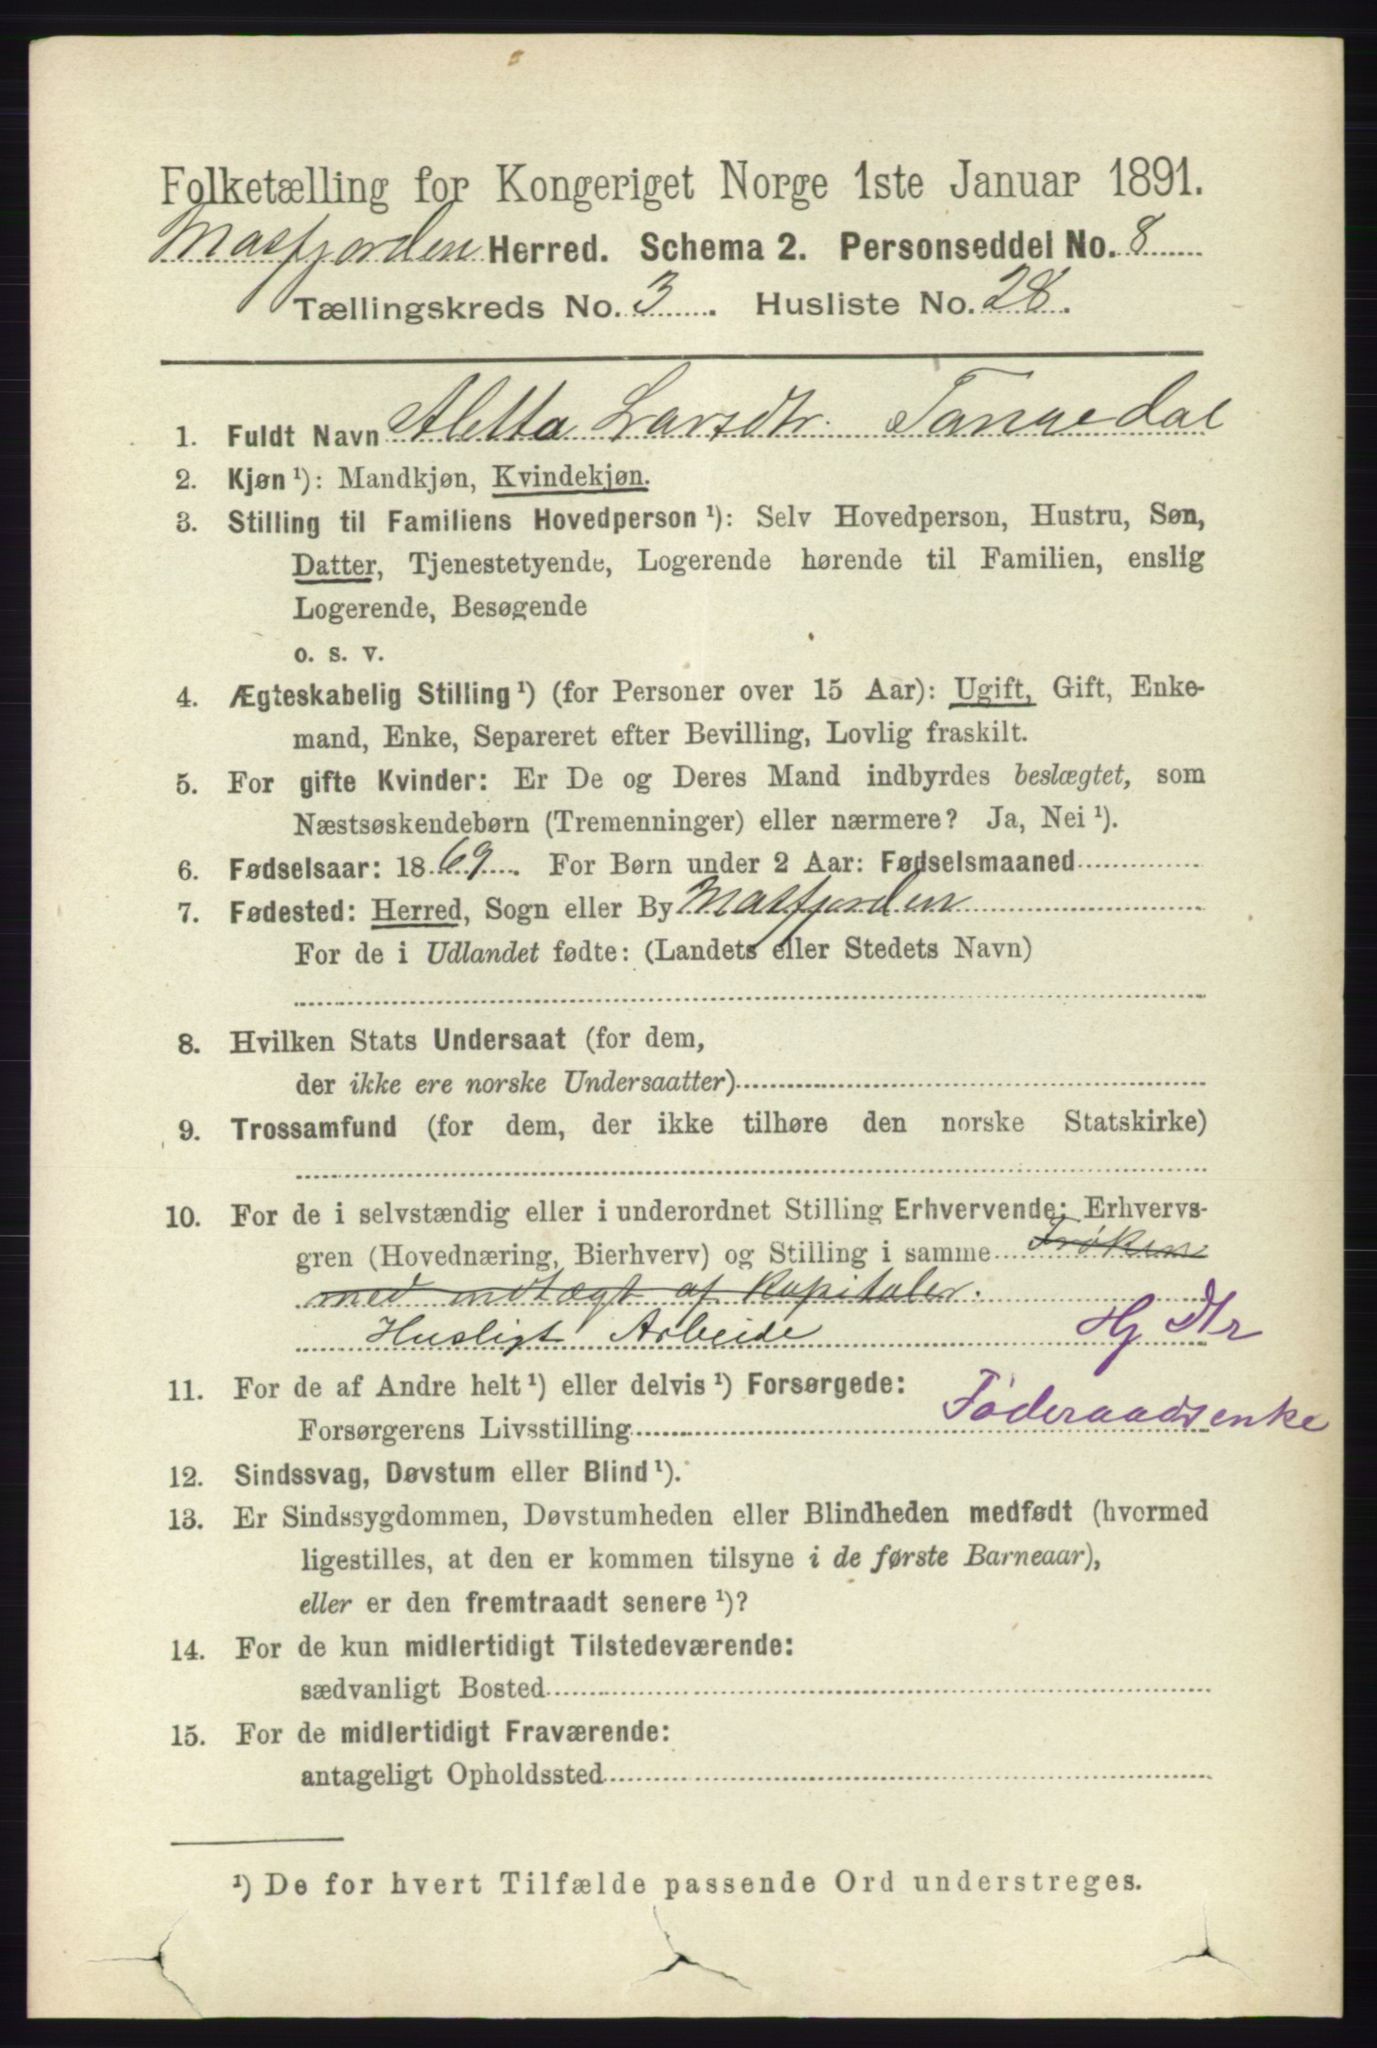 Folketælling for Kongeriget Norge 1ste Januar 1891.
Masfjorden Herred. Schema 2. Personseddel No. 8
Tællingskreds No. 3. Husliste No. 28.
1. Fuldt Navn Aletta Larsdtr. Tangedal
2. Kjøn ¹): Mandkjøn, Kvindekjøn.
3. Stilling til Familiens Hovedperson ¹): Selv Hovedperson, Hustru, Søn,
Datter, Tjenestetyende, Logerende hørende til Familien, enslig
Logerende, Besøgende
o. s. v.
4. Ægteskabelig Stilling ¹) (for Personer over 15 Aar): Ugift, Gift, Enke-
mand, Enke, Separeret efter Bevilling, Lovlig fraskilt.
5. For gifte Kvinder: Er De og Deres Mand indbyrdes beslægtet, som
Næstsøskendebørn (Tremenninger) eller nærmere? Ja, Nei ¹).
6. Fødselsaar: 1869. For Børn under 2 Aar: Fødselsmaaned
7. Fødested: Herred, Sogn eller By Masfjorden
For de i Udlandet fødte: (Landets eller Stedets Navn)
8. Hvilken Stats Undersaat (for dem,
der ikke ere norske Undersaatter)
9. Trossamfund (for dem, der ikke tilhøre den norske Statskirke)
10. For de i selvstændig eller i underordnet Stilling Erhvervende: Erhvervs-
gren (Hovednæring, Bierhverv) og Stilling i samme Frøken
med indtægt af Kapitaler.
Husligt Arbeide Hj Dtr
11. For de af Andre helt ¹) eller delvis ¹) Forsørgede:
Forsørgerens Livsstilling Føderaadsenke
12. Sindssvag, Døvstum eller Blind ¹).
13. Er Sindssygdommen, Døvstumheden eller Blindheden medfødt (hvormed
ligestilles, at den er kommen tilsyne i de første Barneaar),
eller er den fremtraadt senere ¹)?
14. For de kun midlertidigt Tilstedeværende:
sædvanligt Bosted
15. For de midlertidigt Fraværende:
antageligt Opholdssted
¹) De for hvert Tilfælde passende Ord understreges.